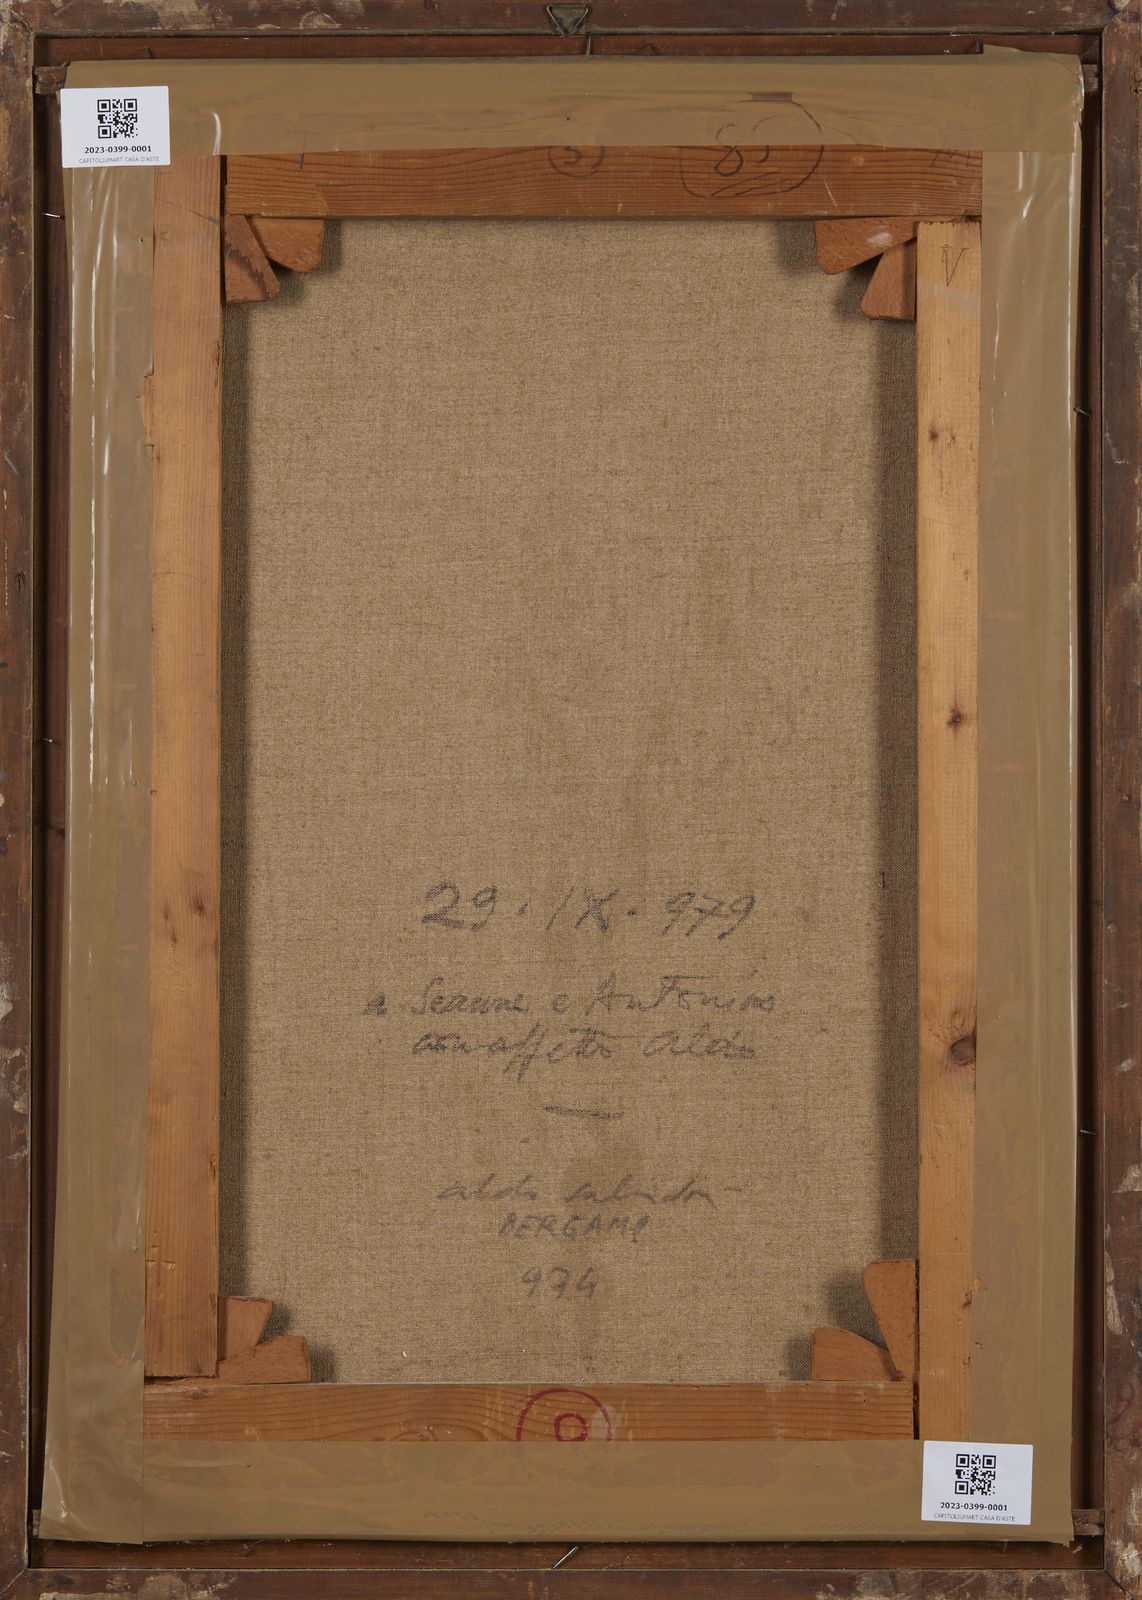 2023-0399-0001
CAPITOLIUMART CASA D'ASTE
5 85
V
29 . IX . 979
a Jeanne e Antonino
con affetto Aldo
aldo
BERGAMO
974
2023-0399-0001
CAPITOLIUMART CASA D'ASTE